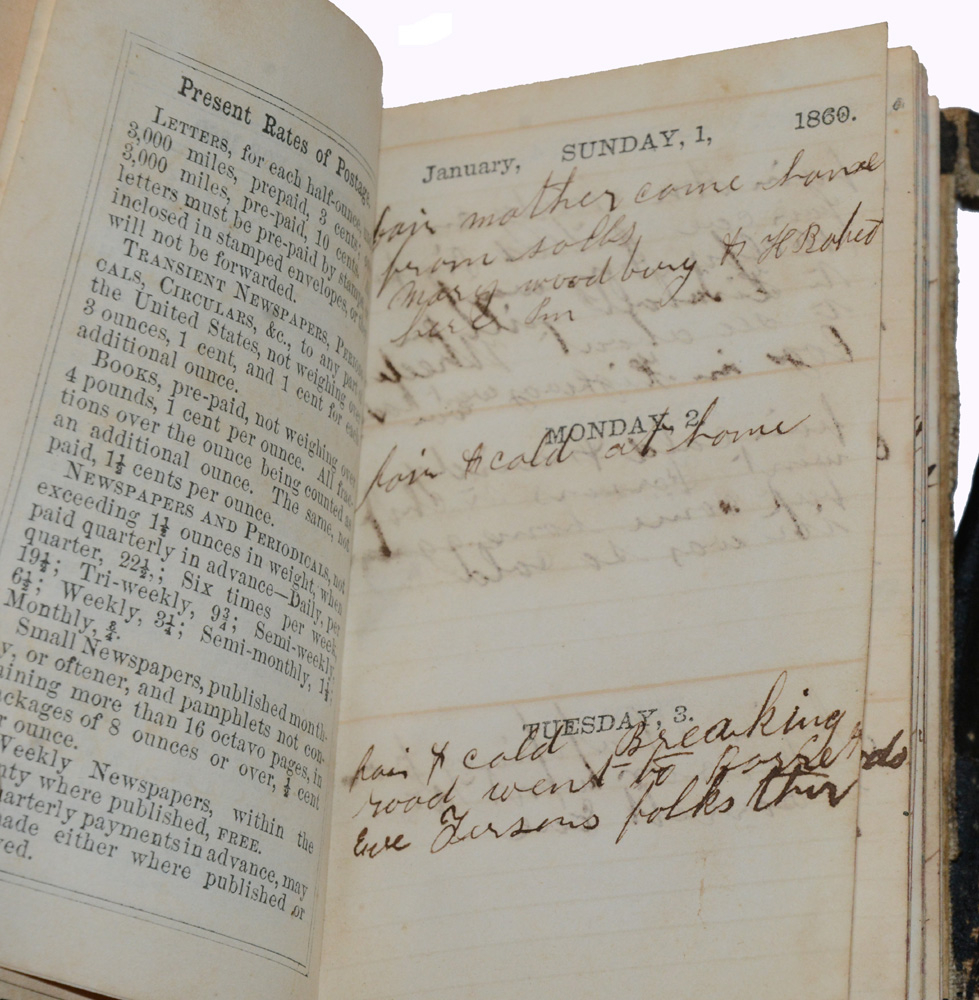 Present Rates of Postage.
LETTERS, for each half-ounce,
3,000 miles, prepaid, 3 cents;
3,000 miles, pre-paid, 10 cents
letters must be pre-paid by stamps
inclosed in stamped envelopes, or
will not be forwarded.
TRANSIENT NEWSPAPERS, PERIODI-
CALS, CIRCULARS, &c., to any part
the United States, not weighing over
3 ounces, 1 cent, and 1 cent for each
additional ounce.
BOOKS, pre-paid, not weighing over
4 pounds, 1 cent per ounce. All frac-
tions over the ounce being counted as
an additional ounce. The same, not
paid, 1½ cents per ounce.
NEWSPAPERS AND PERIODICALS, not
exceeding 1½ ounces in weight, when
paid quarterly in advance—Daily, per
quarter, 22½; Six times per week,
19½; Tri-weekly, 9¾; Semi-weekly
6½; Weekly, 3¼; Semi-monthly, 1½;
Monthly, ¾.
Small Newspapers, published month-
y, or oftener, and pamphlets not con-
aining more than 16 octavo pages, in
ackages of 8 ounces or over, ½ cent
r ounce.
Weekly Newspapers, within the
nty where published, FREE.
uarterly payments in advance, may
ade either where published or
ved.
January, SUNDAY, 1, 1860.
fair mother came home
from folks
Mary woodbury & H
here
MONDAY, 2.
fair & cold at home
TUESDAY, 3.
fair & cold Breaking
road went to
Eve folks thir